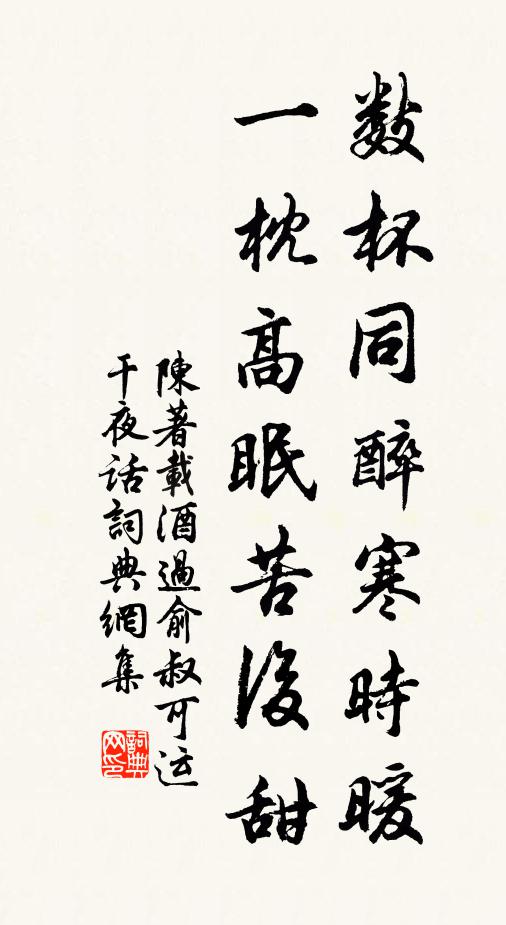 数杯同醉寒時暖
一枕高眠苦後甜
陳著載酒過俞叔可运
干夜话詞典網集
詞典网印